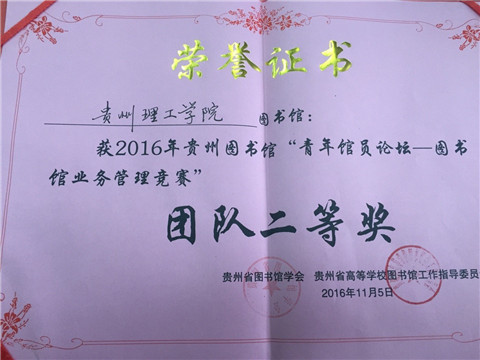 荣誉证书
贵州理工学院图书馆：
获2016年贵州图书馆“青年馆员论坛—图书
馆业务管理竞赛”
团队二等奖
贵州省图书馆学会 贵州省高等学校图书馆工作指导委员
2016年11月5日